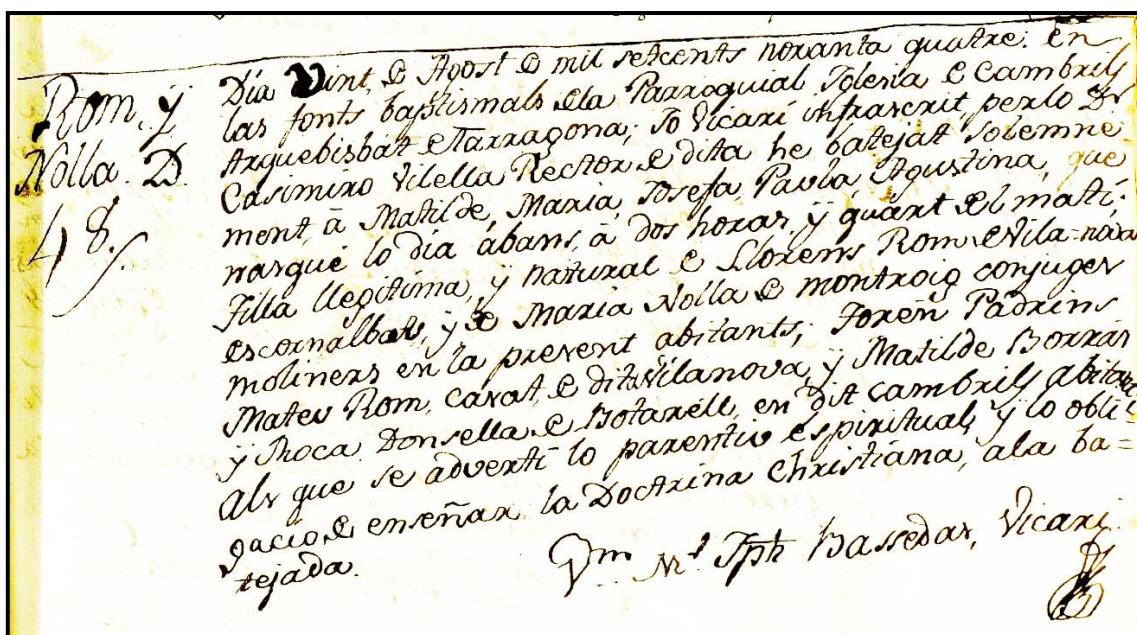 Rom, y
Nolla. D.
48.
Dia Vint, de Agost de mil setcents noranta quatre. en
las fonts baptismals dela Parroquial Iglesia de Cambrils
Arquebisbat de Tarragona; Jo Vicari infrascrit, per lo Dr
Casimiro Vilella Rector de dita he batejat solemne-
ment, à Matilde, Maria, Josefa, Paula, Agustina, que
nasqué lo dia ábans, à dos horas, y quart del matí;
Filla llegitima, y natural de Llorens Rom de Vila=nova
escornalbou, y de Maria Nolla de montroig conjuges
moliners en la present abitants; foren Padrins
Mateu Rom, casat, de dita Vilanova, y Matilde Borràs
y Roca, Donsella de Botarell, en dit Cambrils abitant
Als que se advertí lo parentiu espiritual, y lo obli=
gació, de enseñar la Doctrina Christiana, ala ba=
tejada.
Jph Bassedas, Vicari.